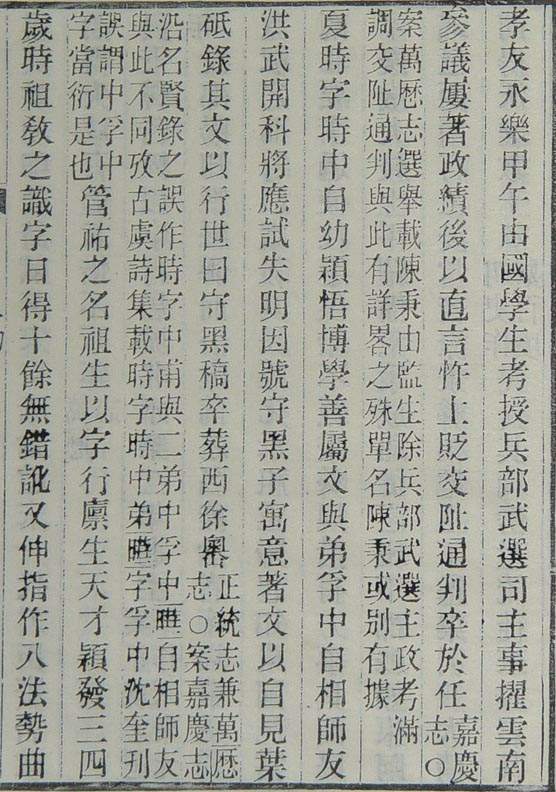 孝友永樂甲午由國學生考授兵部武選司主事擢雲南
參議屢著政績後以直言忤上貶交阯通判卒於任
嘉慶
志○
案萬歷志選舉載陳秉由監生除兵部武選主政考滿
調交阯通判與此有詳畧之殊單名陳秉或别有據
夏時字時中自幼穎悟博學善屬文與弟孚中自相師友
洪武開科將應試失明因號守黑子寓意著文以自見葉
砥錄其文以行世曰守黑稿卒葬西徐嶴
正統志兼萬歷
志○案嘉慶志
沿名賢錄之誤作時字中甫與二弟中孚中自相師友
與此不同攷古虞詩集載時字時中弟字孚中沈奎刊
誤謂中孚中
字當衍是也
管祐之名祖生以字行廩生天才穎發三四
歲時祖敎之識字日得十餘無錯訛又伸指作八法勢曲